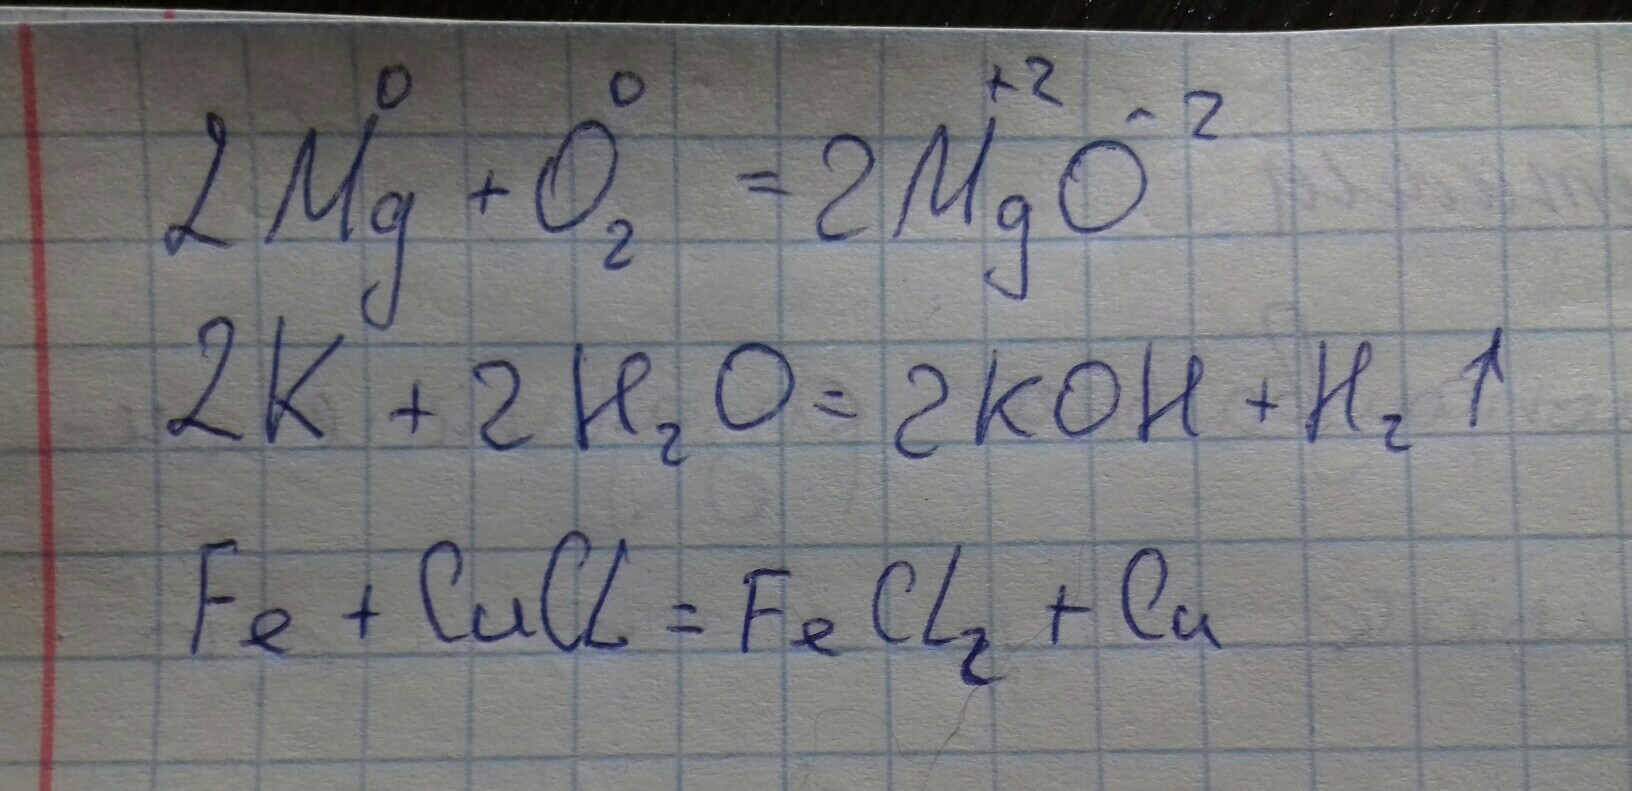 2Mg⁰ + O₂⁰ = 2Mg⁺²O⁻²
2K + 2H₂O = 2KOH + H₂↑
Fe + CuCl = FeCl₂ + Cu